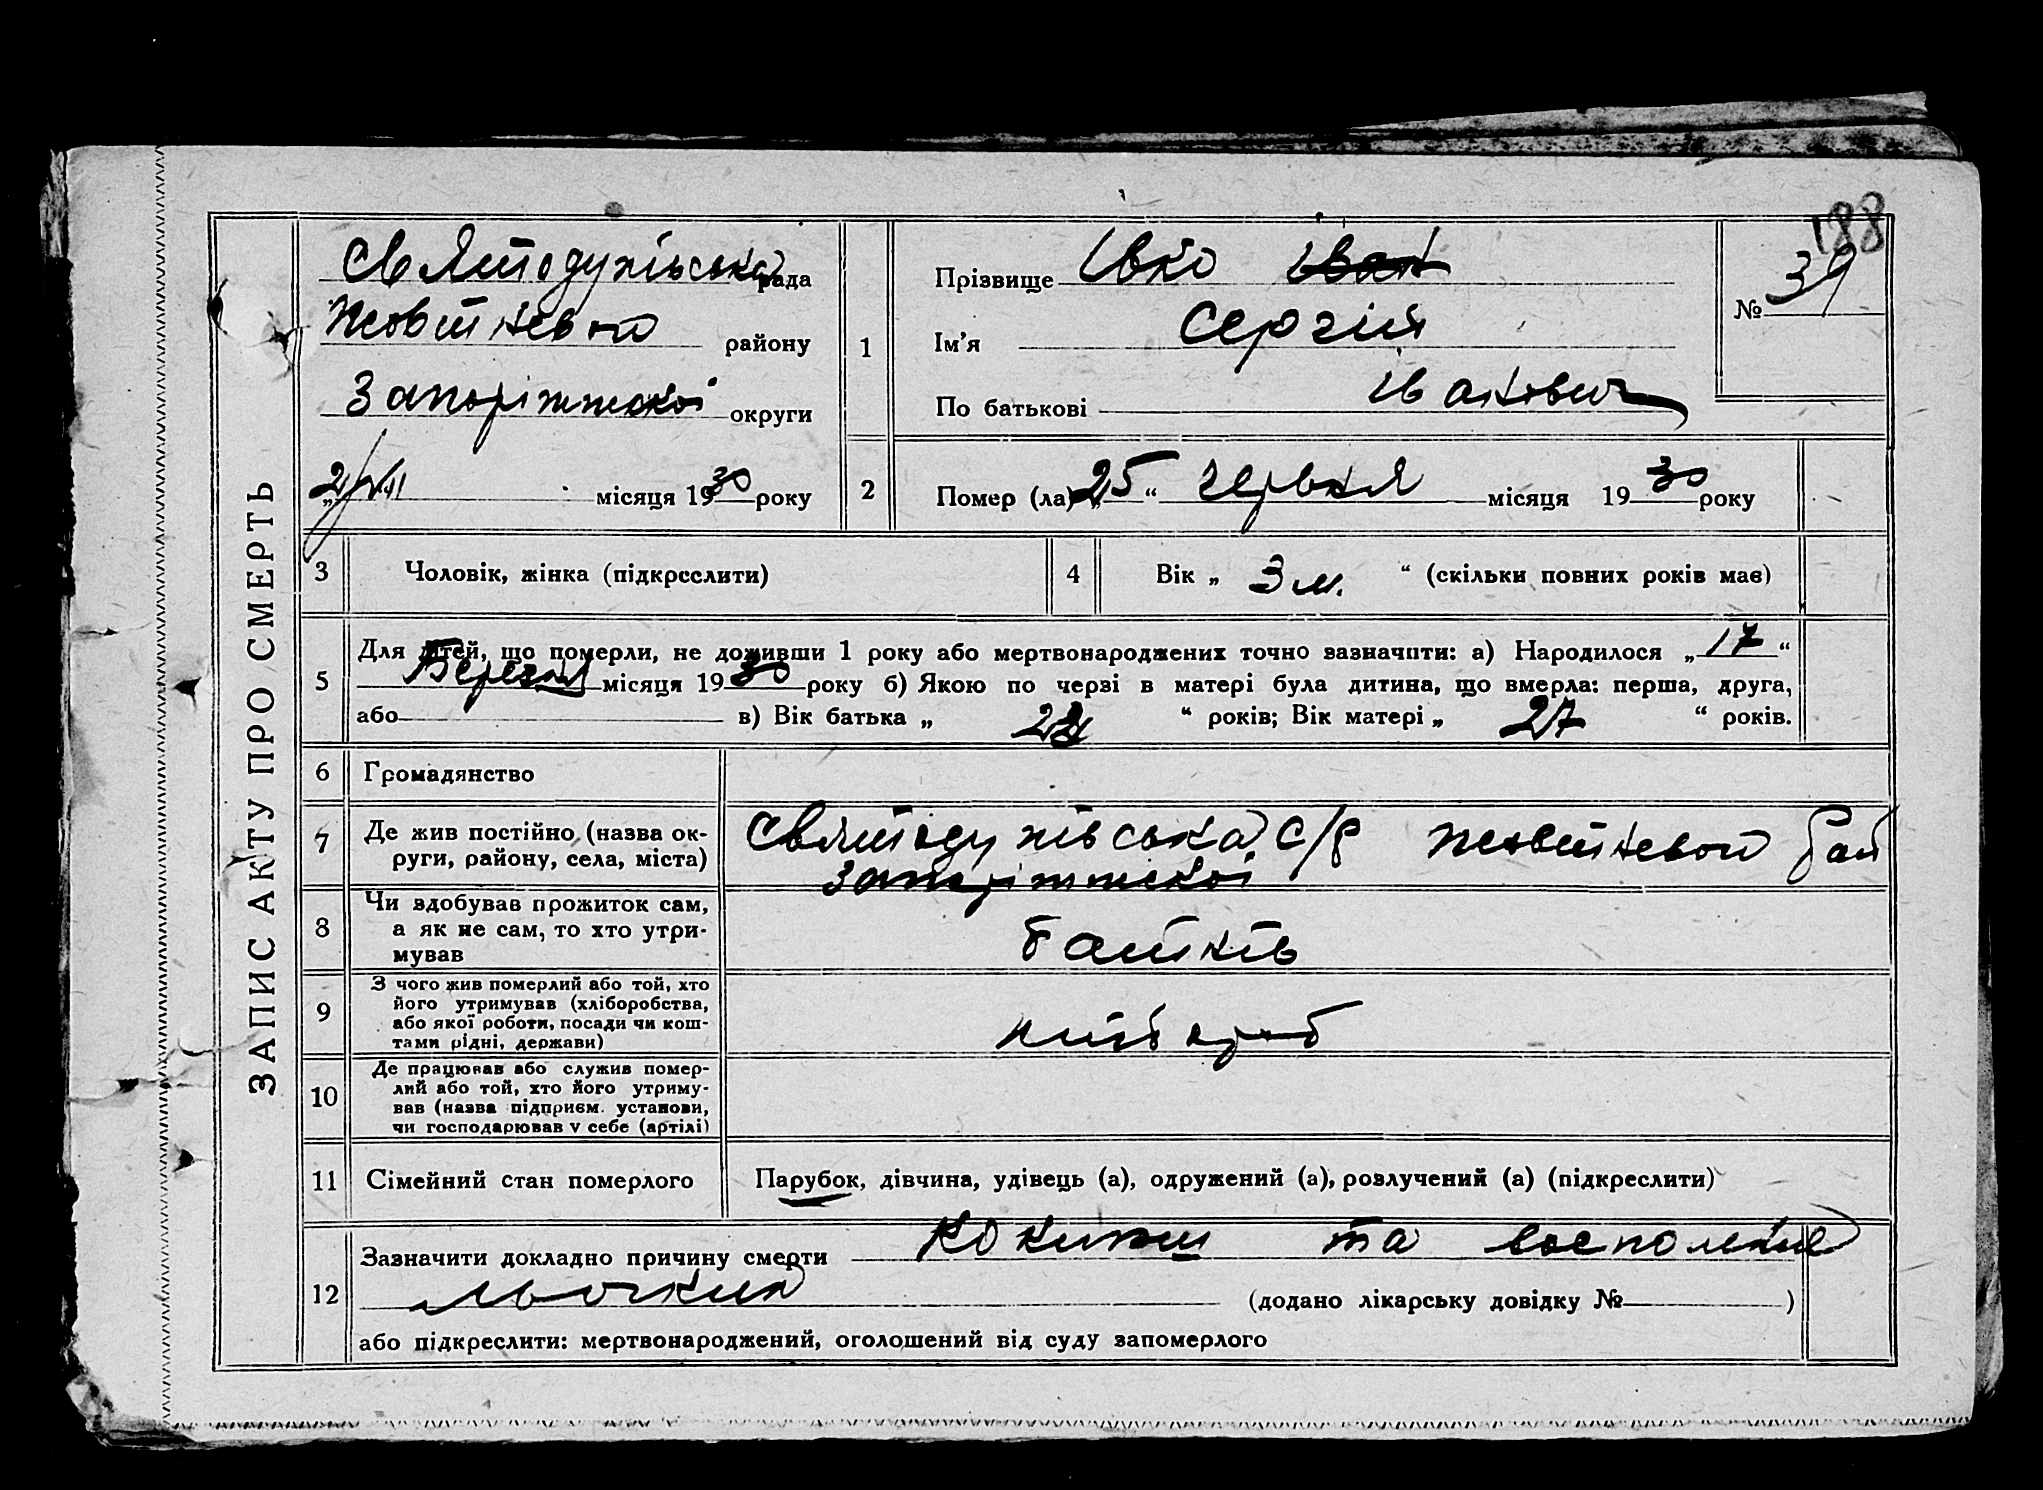 188
ЗАПИС АКТУ ПРО СМЕРТЬ
Святодухівська рада
Жовтневого району
Запоріжжської округи
місяця 1930 року
1
Прізвище Івко Іван
Ім'я Сергій
По батькові Іванович
№ 39
2
Помер (ла) „25“ червня місяця 1930 року
3
Чоловік, жінка (підкреслити)
4
Вік „3 м.“ (скільки повних років має)
5
Для дітей, що померли, не доживши 1 року або мертвонароджених точно зазначити: а) Народилося „17“
Березня місяця 1930 року б) Якою по черзі в матері була дитина, що вмерла: перша, друга,
або в) Вік батька „ “ років; Вік матері „27“ років.
6
Громадянство
7
Де жив постійно (назва ок-
руги, району, села, міста)
Святодухівська с/р Жовтневого Рай
Запоріжжської
8
Чи здобував прожиток сам,
а як не сам, то хто утри-
мував
батьків
9
З чого жив померлий або той, хто
його утримував (хліборобства,
або якої роботи, посади чи кош-
тами рідні, держави)
хлібороб
10
Де працював або служив помер-
лий або той, хто його утриму-
вав (назва підприєм. установи,
чи господарював у себе (артілі)
11
Сімейний стан померлого
Парубок, дівчина, удівець (а), одружений (а), розлучений (а) (підкреслити)
12
Зазначити докладно причину смерти та
(додано лікарську довідку № )
або підкреслити: мертвонароджений, оголошений від суду запомерлого